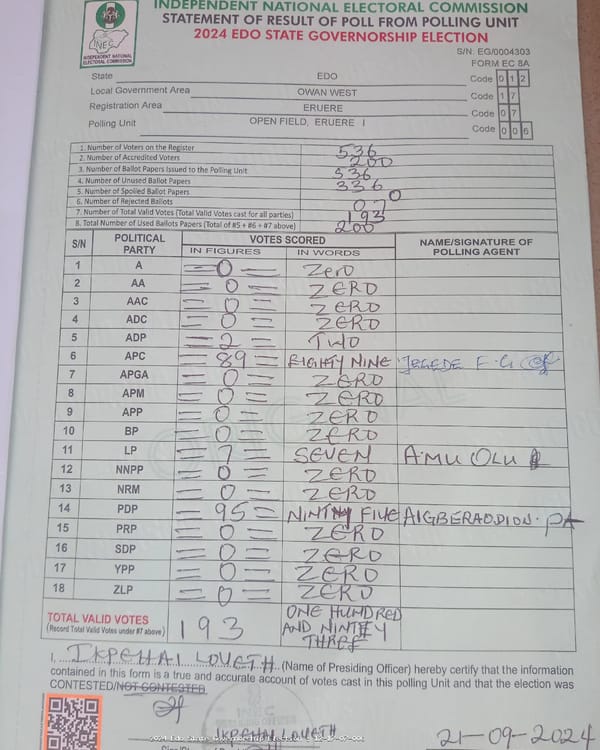 INDEPENDENT NATIONAL ELECTORAL COMMISSION
STATEMENT OF RESULT OF POLL FROM POLLING UNIT
2024 EDO STATE GOVERNORSHIP ELECTION
INEC
INDEPENDENT NATIONAL ELECTORAL COMMISSION
S/N: EG/0004303
FORM EC 8A
State EDO Code 0 1 2
Local Government Area OWAN WEST Code 1 7
Registration Area ERUERE Code 0 7
Polling Unit OPEN FIELD, ERUERE I Code 0 0 6
1. Number of Voters on the Register 536
2. Number of Accredited Voters 200
3. Number of Ballot Papers Issued to the Polling Unit 536
4. Number of Unused Ballot Papers 336
5. Number of Spoiled Ballot Papers 0
6. Number of Rejected Ballots 07
7. Number of Total Valid Votes (Total Valid Votes cast for all parties) 193
8. Total Number of Used Ballots Papers (Total of #5 + #6 + #7 above) 200
S/N POLITICAL PARTY VOTES SCORED NAME/SIGNATURE OF POLLING AGENT
IN FIGURES IN WORDS
1 A =0= Zero
2 AA =0= ZERO
3 AAC =0= ZERO
4 ADC =0= ZERO
5 ADP =2= TWO
6 APC =89= EIGHTY NINE JEGEDE F.G
7 APGA =0= ZERO
8 APM =0= ZERO
9 APP =0= ZERO
10 BP =0= ZERO
11 LP =7= SEVEN AMU OLU
12 NNPP =0= ZERO
13 NRM =0= ZERO
14 PDP =95= FIVE
15 PRP =0= ZERO
16 SDP =0= ZERO
17 YPP =0= ZERO
18 ZLP =0= ZERO
TOTAL VALID VOTES
(Record Total Valid Votes under #7 above) 193 ONE HUNDRED
AND
THREE
I, IKPEHAI LOVETH (Name of Presiding Officer) hereby certify that the information
contained in this form is a true and accurate account of votes cast in this polling Unit and that the election was
CONTESTED/NOT CONTESTED.
IKPEHAI LOVETH 21-09-2024